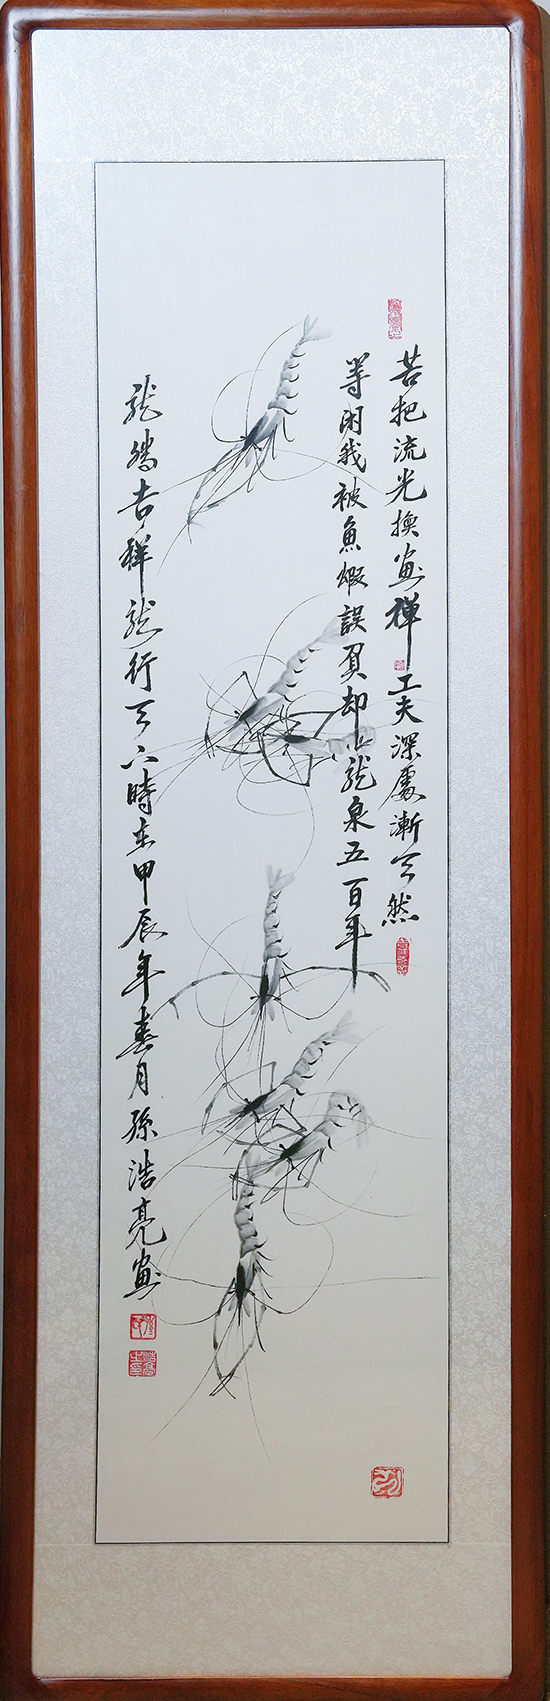 苦把流光換畫禪工夫深處漸天然
等閑我被魚蝦誤負却龍泉五百年
龍騰吉祥龍行天下時在甲辰年春月孫浩亮畫